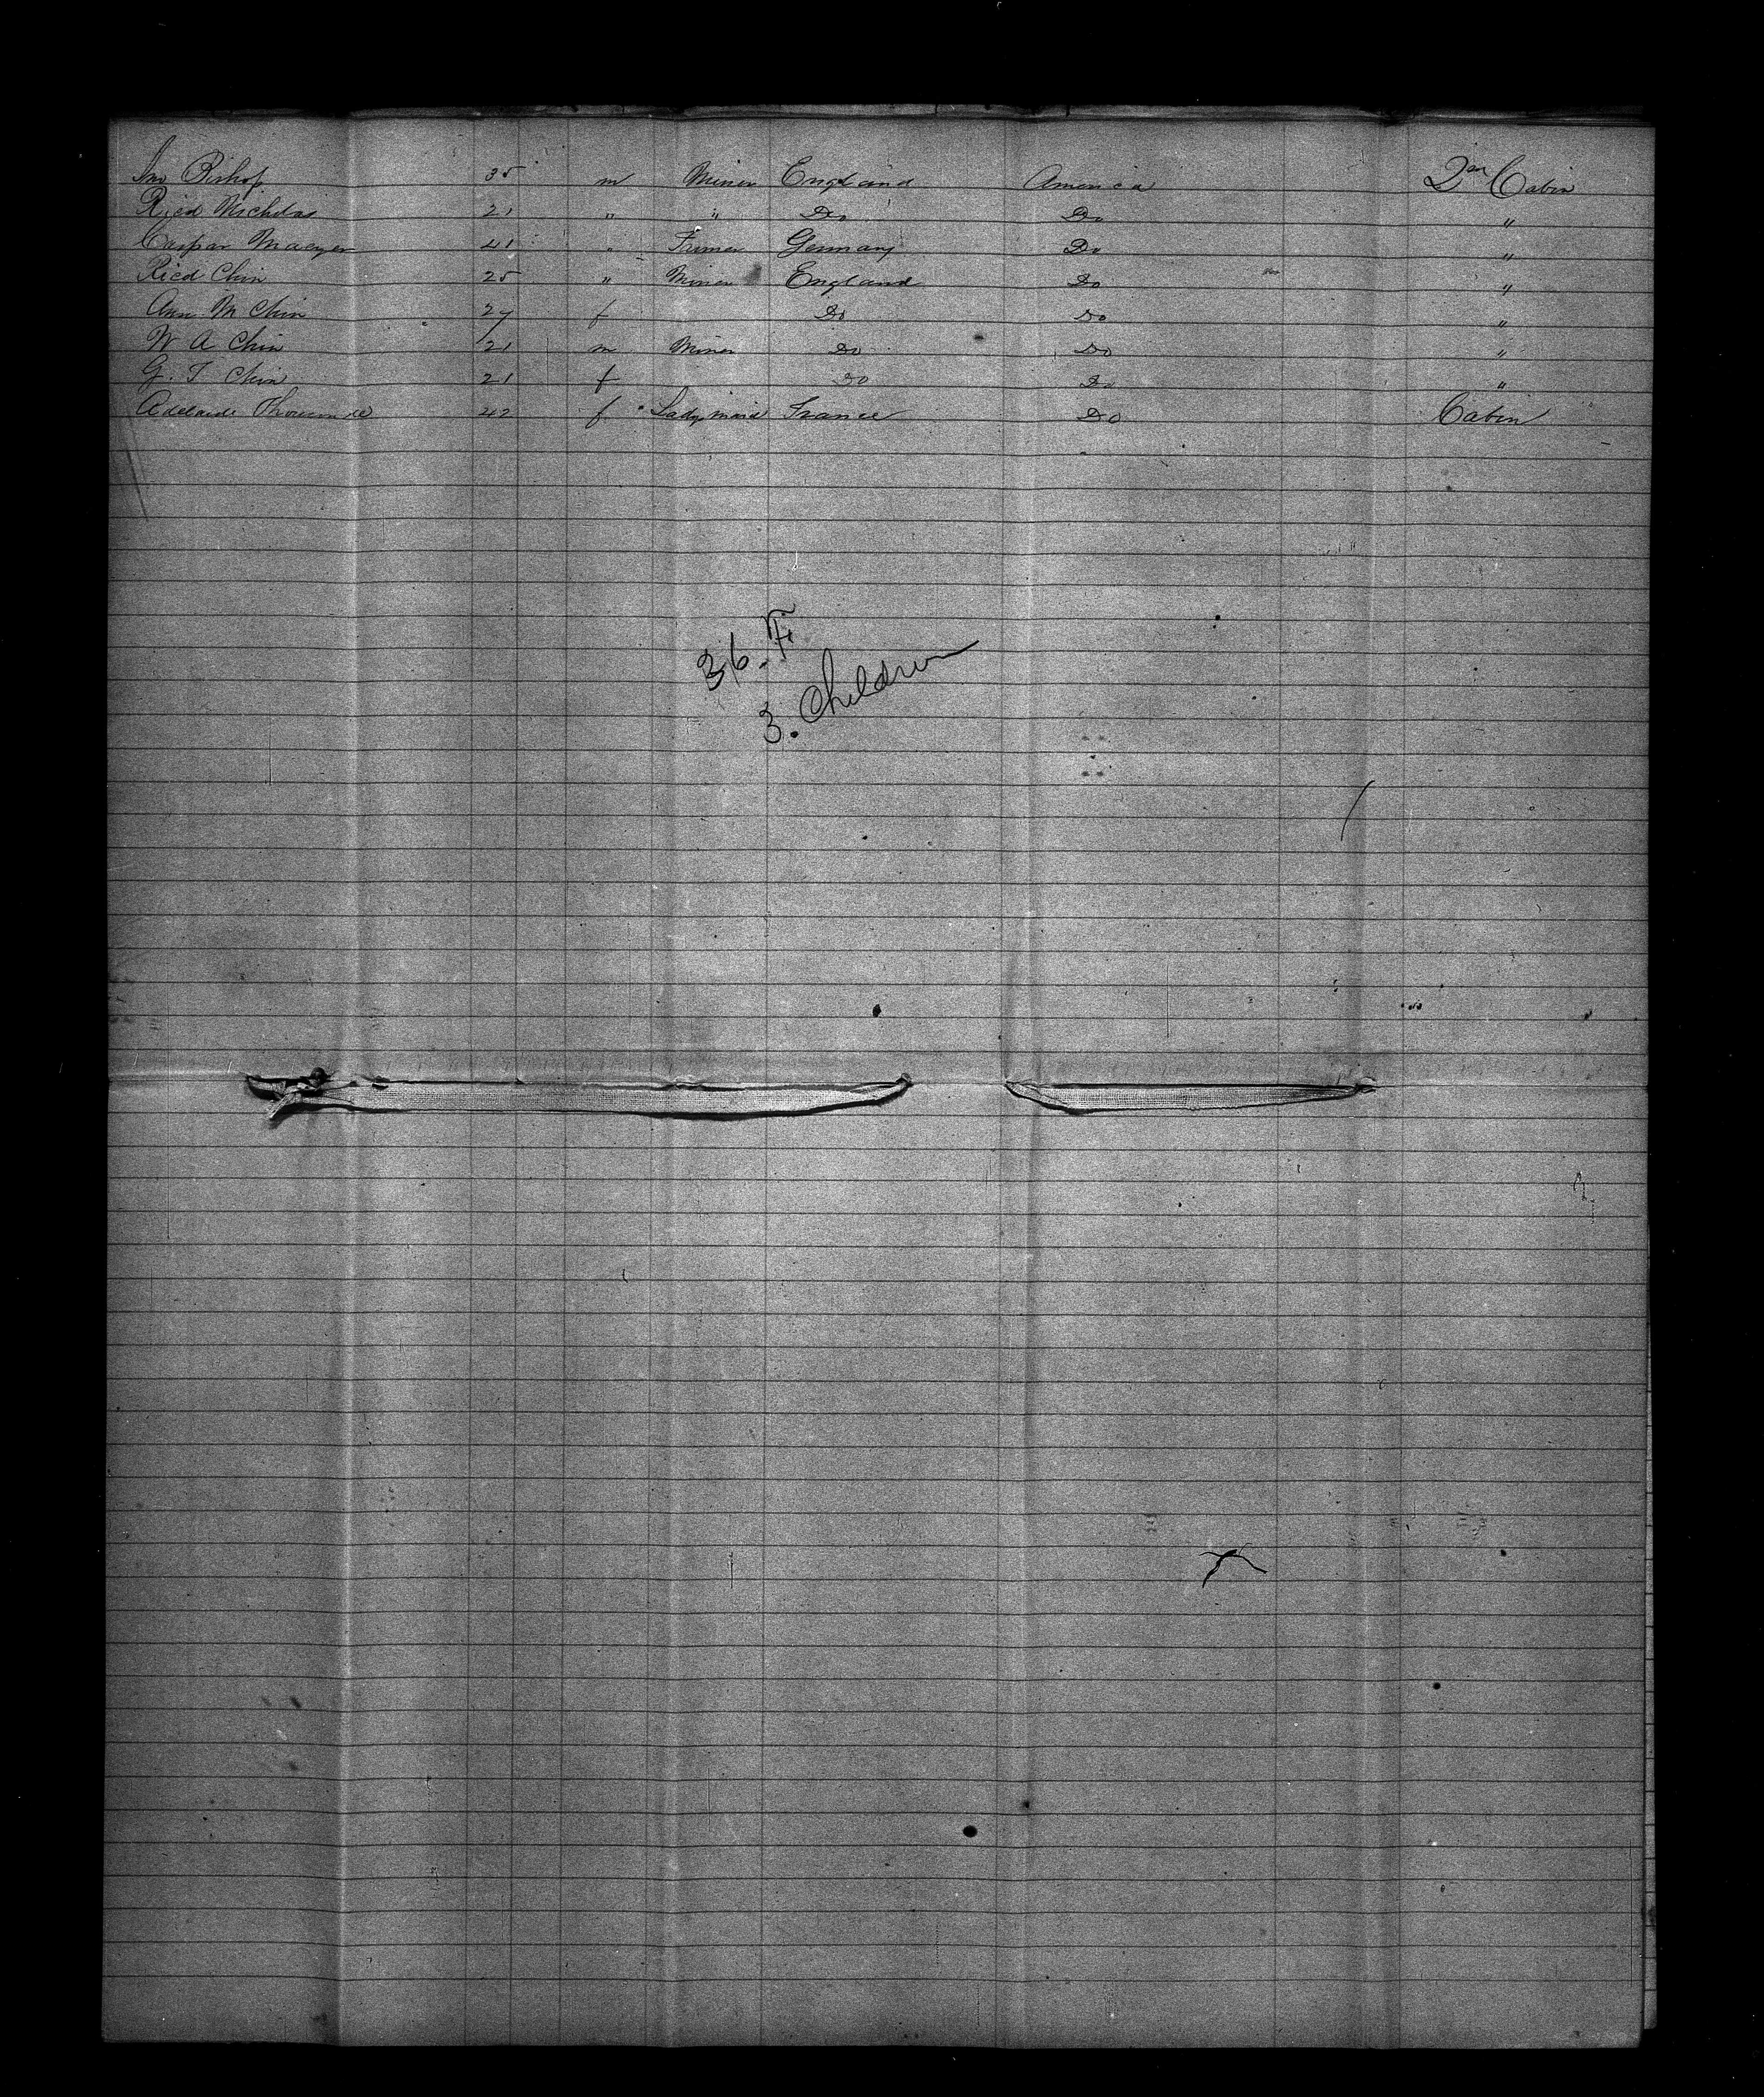 Jno Bishop 35 m Miner England America 2nd Cabin
Ricd Nicholas 21 " " Do Do "
Caspar Maeyer 41 " Farmer Germany Do "
Ricd Chin 25 " Miner England Do "
Ann M Chin 27 f Do Do "
W A Chin 21 m Miner Do Do "
G. T Chin 21 f Do Do "
Adelaide 42 f Ladymaid France Do Cabin
36. F.
3. Children